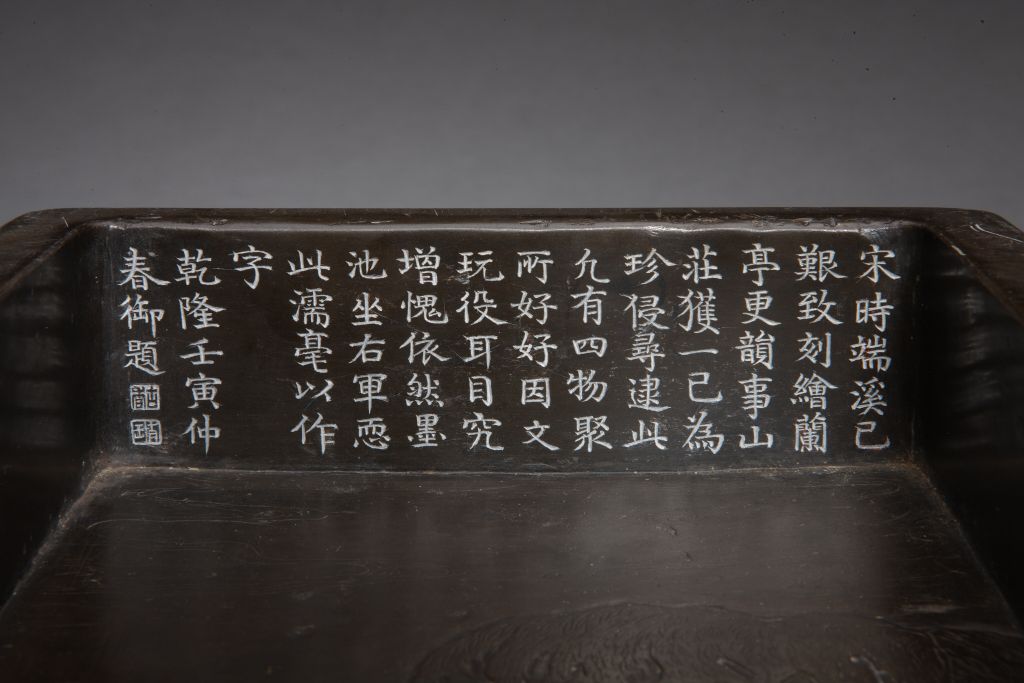 宋時端溪已
艱致刻繪蘭
亭更韻事山
莊獲一已為
珍侵尋逮此
凢有四物聚
所好好因文
玩役耳目究
增愧依然墨
池坐右軍恧
此濡毫以作
字
乾隆壬寅仲
春御題